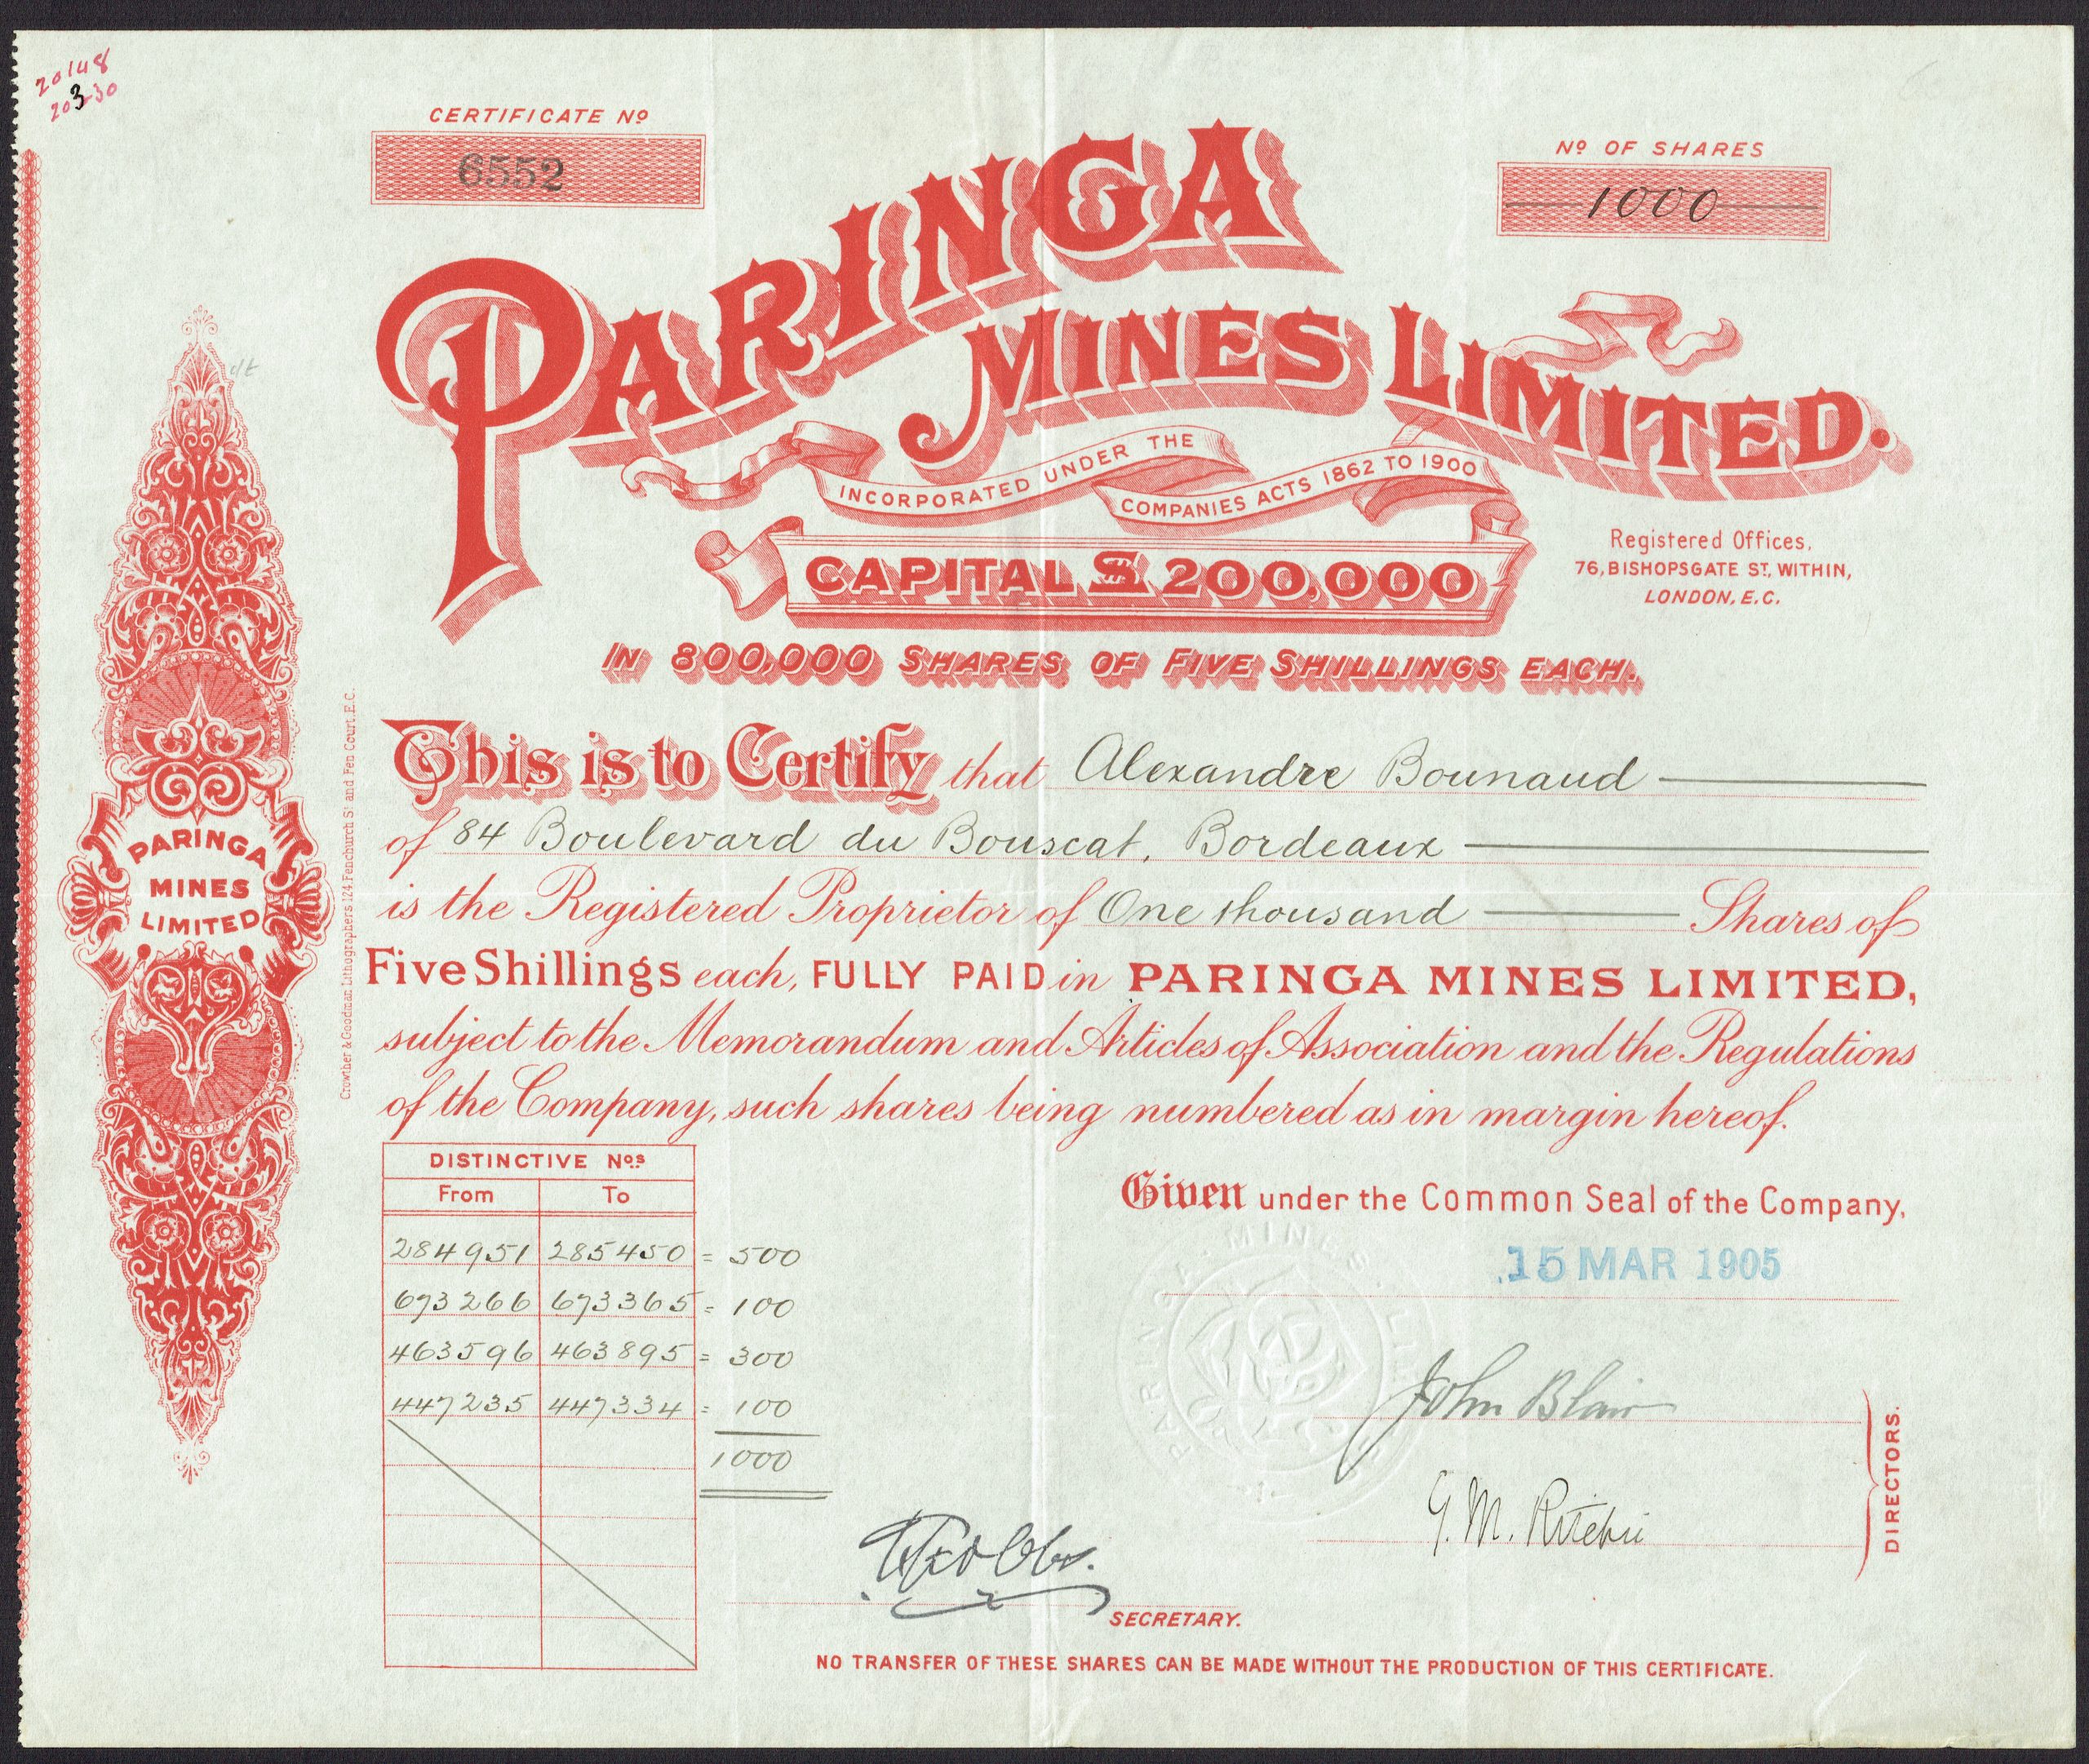 20148
20330
CERTIFICATE Nº
6552
Nº OF SHARES
1000
PARINGA
MINES LIMITED.
INCORPORATED UNDER THE
COMPANIES ACTS 1862 TO 1900
CAPITAL £200,000
Registered Offices,
76, BISHOPSGATE ST. WITHIN,
LONDON, E.C.
IN 800,000 SHARES OF FIVE SHILLINGS EACH.
This is to Certify that Alexandre Bounaud
of 84 Boulevard du Bouscat, Bordeaux
is the Registered Proprietor of One thousand Shares of
Five Shillings each, FULLY PAID in PARINGA MINES LIMITED,
subject to the Memorandum and Articles of Association and the Regulations
of the Company, such shares being numbered as in margin hereof.
PARINGA
MINES
LIMITED
Crowther & Goodman Lithographers 124, Fenchurch St and Fen Court. E.C.
DISTINCTIVE Nos
From To
284951 285450 = 500
673266 673365 = 100
463596 463895 = 300
447235 447334 = 100
1000
Given under the Common Seal of the Company,
15 MAR 1905
PARINGA MINES LIMITED
John Blair
G. M. Ritchie
DIRECTORS.
SECRETARY.
NO TRANSFER OF THESE SHARES CAN BE MADE WITHOUT THE PRODUCTION OF THIS CERTIFICATE.